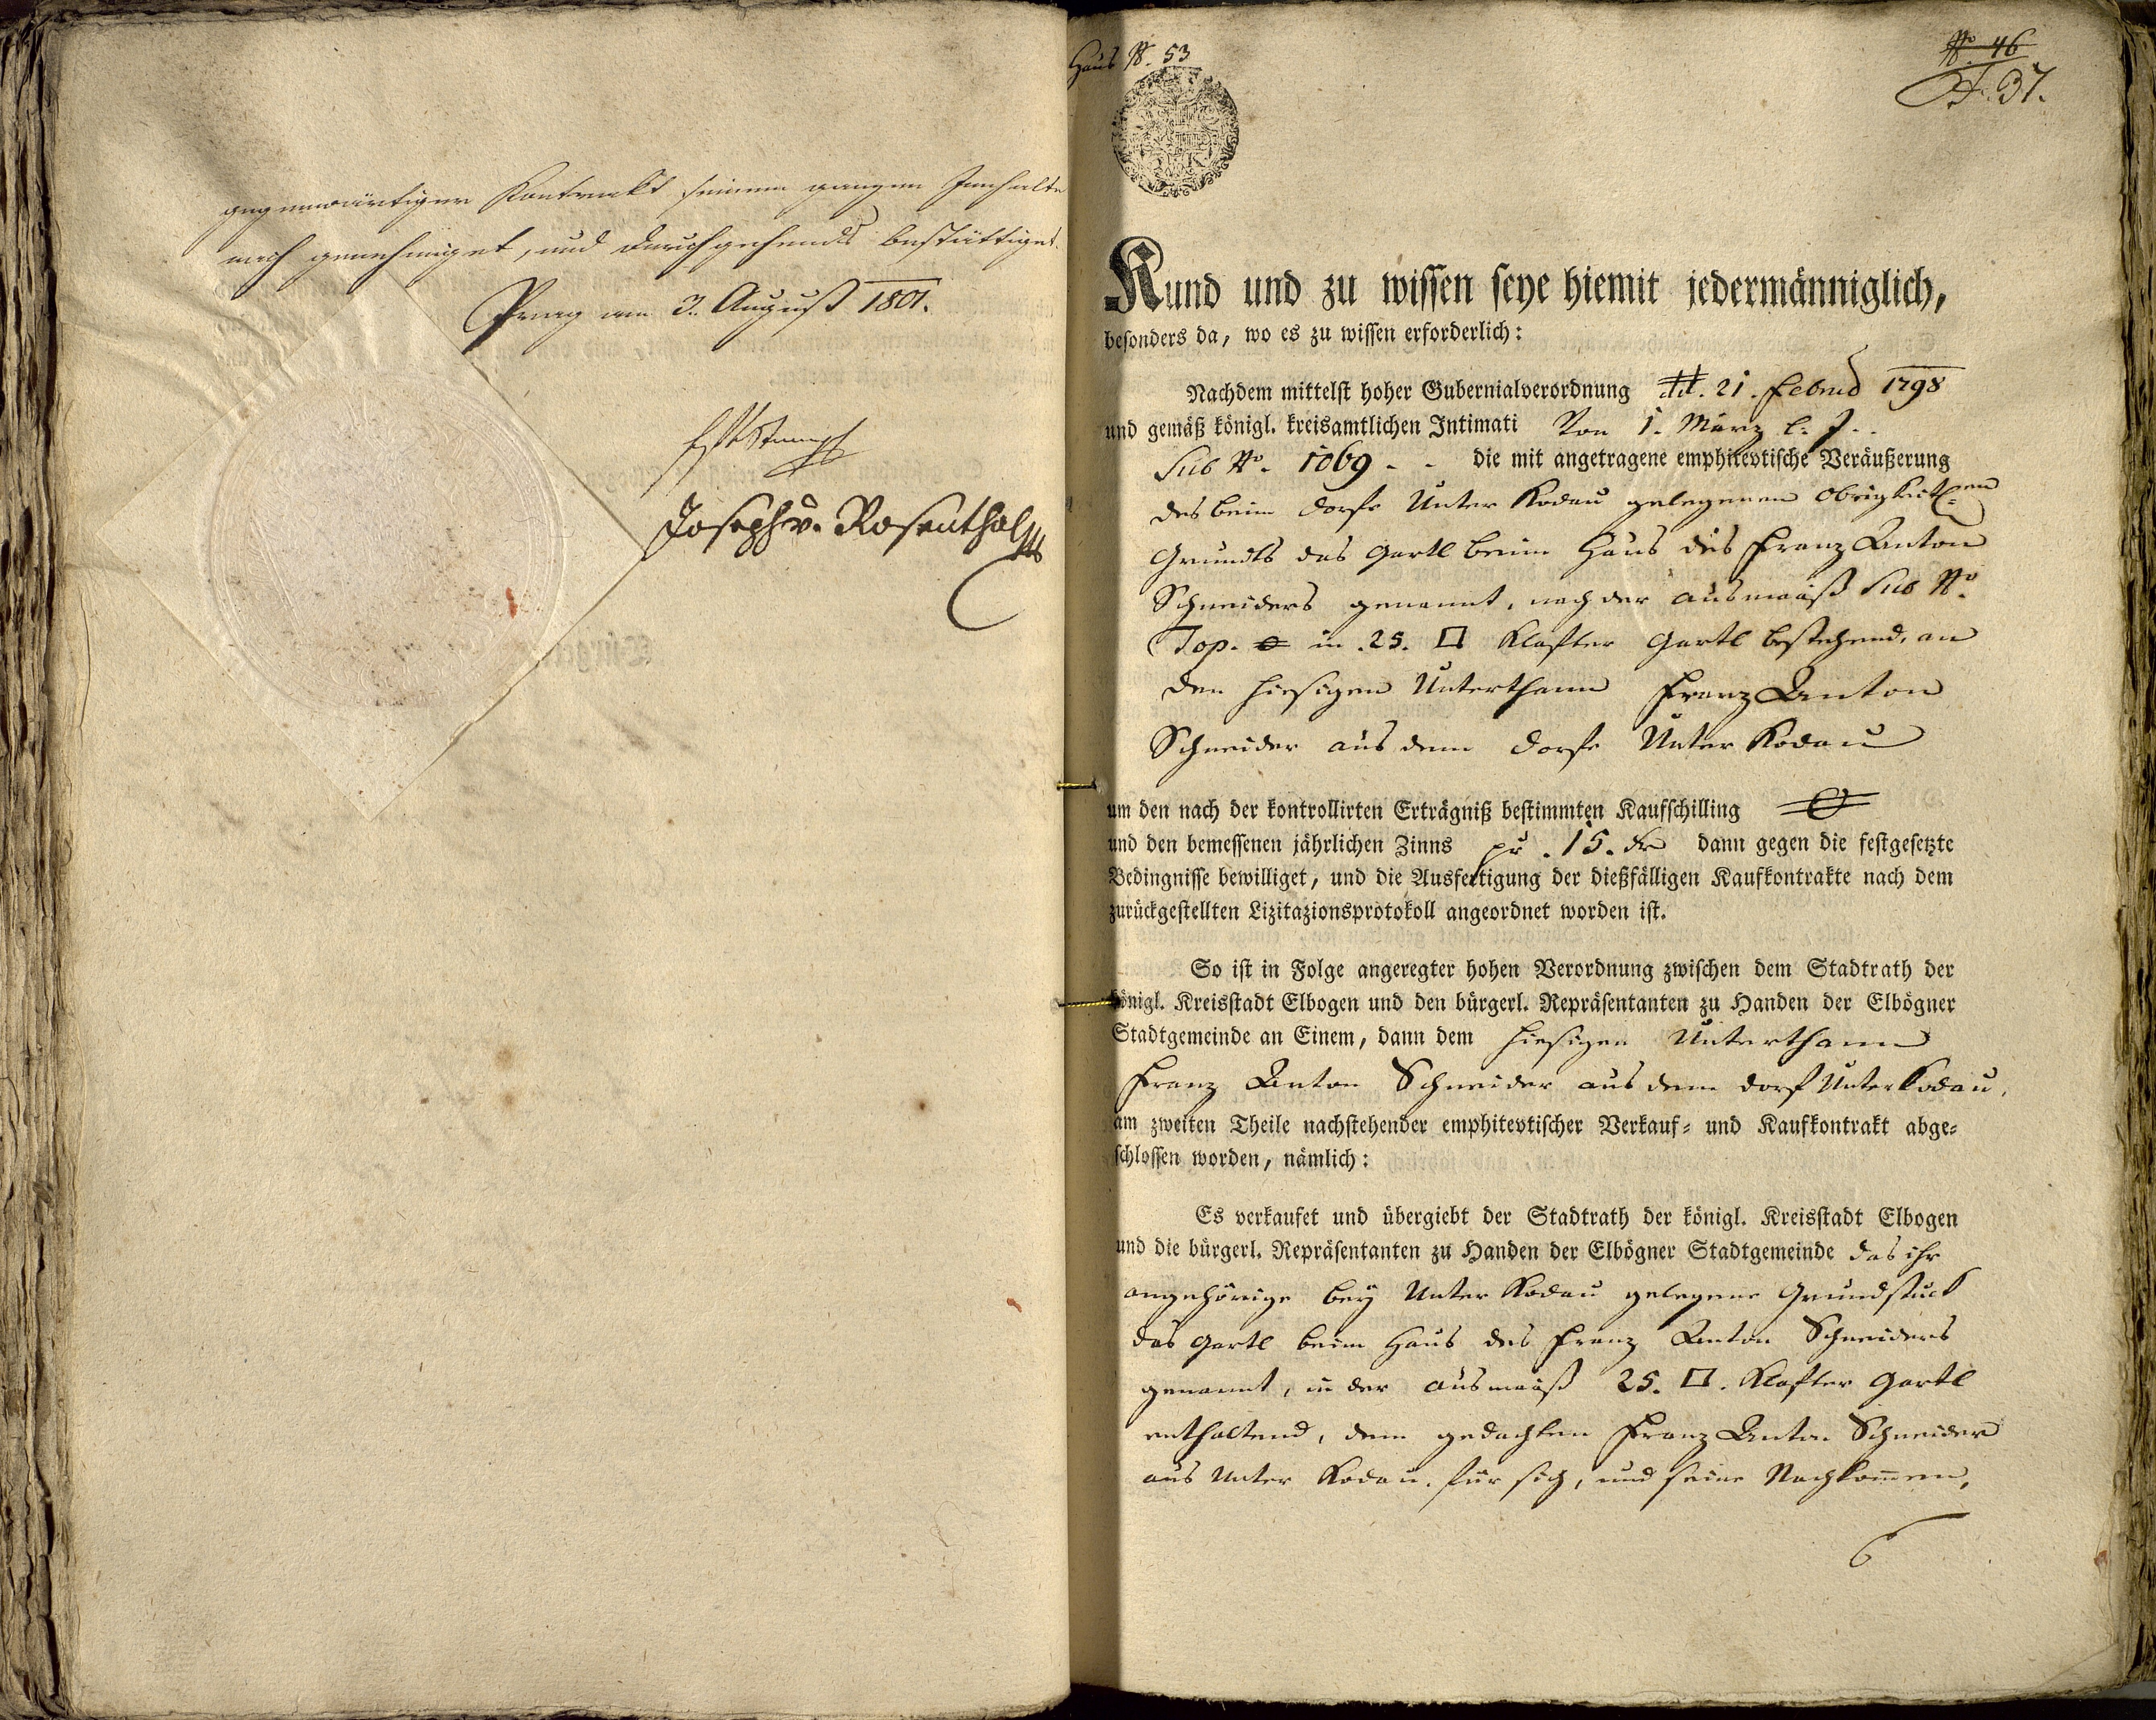 gegenwärtiger Kontrackt seinem ganzen Innhalte
nach genehmiget, und durchgehends bestättiget.
Prag am 3. August 1801.
Joseph v. Rosenthal
Haus No. 53
No. 46
37.
Kund und zu wissen seye hiemit jedermänniglich,
besonders da, wo es zu wissen erforderlich:
Nachdem mittelst hoher Gubernialverordnung dd. 21. Febru 1798
und gemäß königl. kreisamtlichen Intimati Von 1. März l. J.
Sub No. 1069 - - die mit angetragene emphitevtische Veräußerung
des beim Dorfe Unter Kodau gelegenen Obrigkeitl:en
Grundts das Gartl beim Haus des Franz Anton
Schneiders genannt, nach der Ausmaaß Sub No.
Top. in 25. □ Klafter Gartl bestehend, an
den hiesigen Unterthann Franz Anton
Schneider aus dem Dorfe Unter Kodau
um den nach der kontrollirten Erträgniß bestimmten Kaufschilling
und den bemessenen jährlichen Zinns pr. 15. kr dann gegen die festgesetzte
Bedingnisse bewilliget, und die Ausfertigung der dießfälligen Kaufkontrakte nach dem
zurückgestellten Lizitazionsprotokoll angeordnet worden ist.
So ist in Folge angeregter hohen Verordnung zwischen dem Stadtrath der
königl. Kreisstadt Elbogen und den bürgerl. Repräsentanten zu Handen der Elbögner
Stadtgemeinde an Einem, dann dem hiesigen Unterthann
Franz Anton Schneider aus dem Dorf Unter Kodau,
am zweiten Theile nachstehender emphitevtischer Verkauf- und Kaufkontrakt abge-
schlossen worden, nämlich:
Es verkaufet und übergiebt der Stadtrath der königl. Kreisstadt Elbogen
und die bürgerl. Repräsentanten zu Handen der Elbögner Stadtgemeinde das ihr
angehörige bey Unter Kodau gelegene Grundstuck
das Gartl beim Haus des Franz Anton Schneiders
genannt, in der Ausmaaß 25. □. Klafter Gartl
enthaltend, dem gedachten Franz Anton Schneider
aus Unter Kodau, für sich, und seine Nachkom̄en,